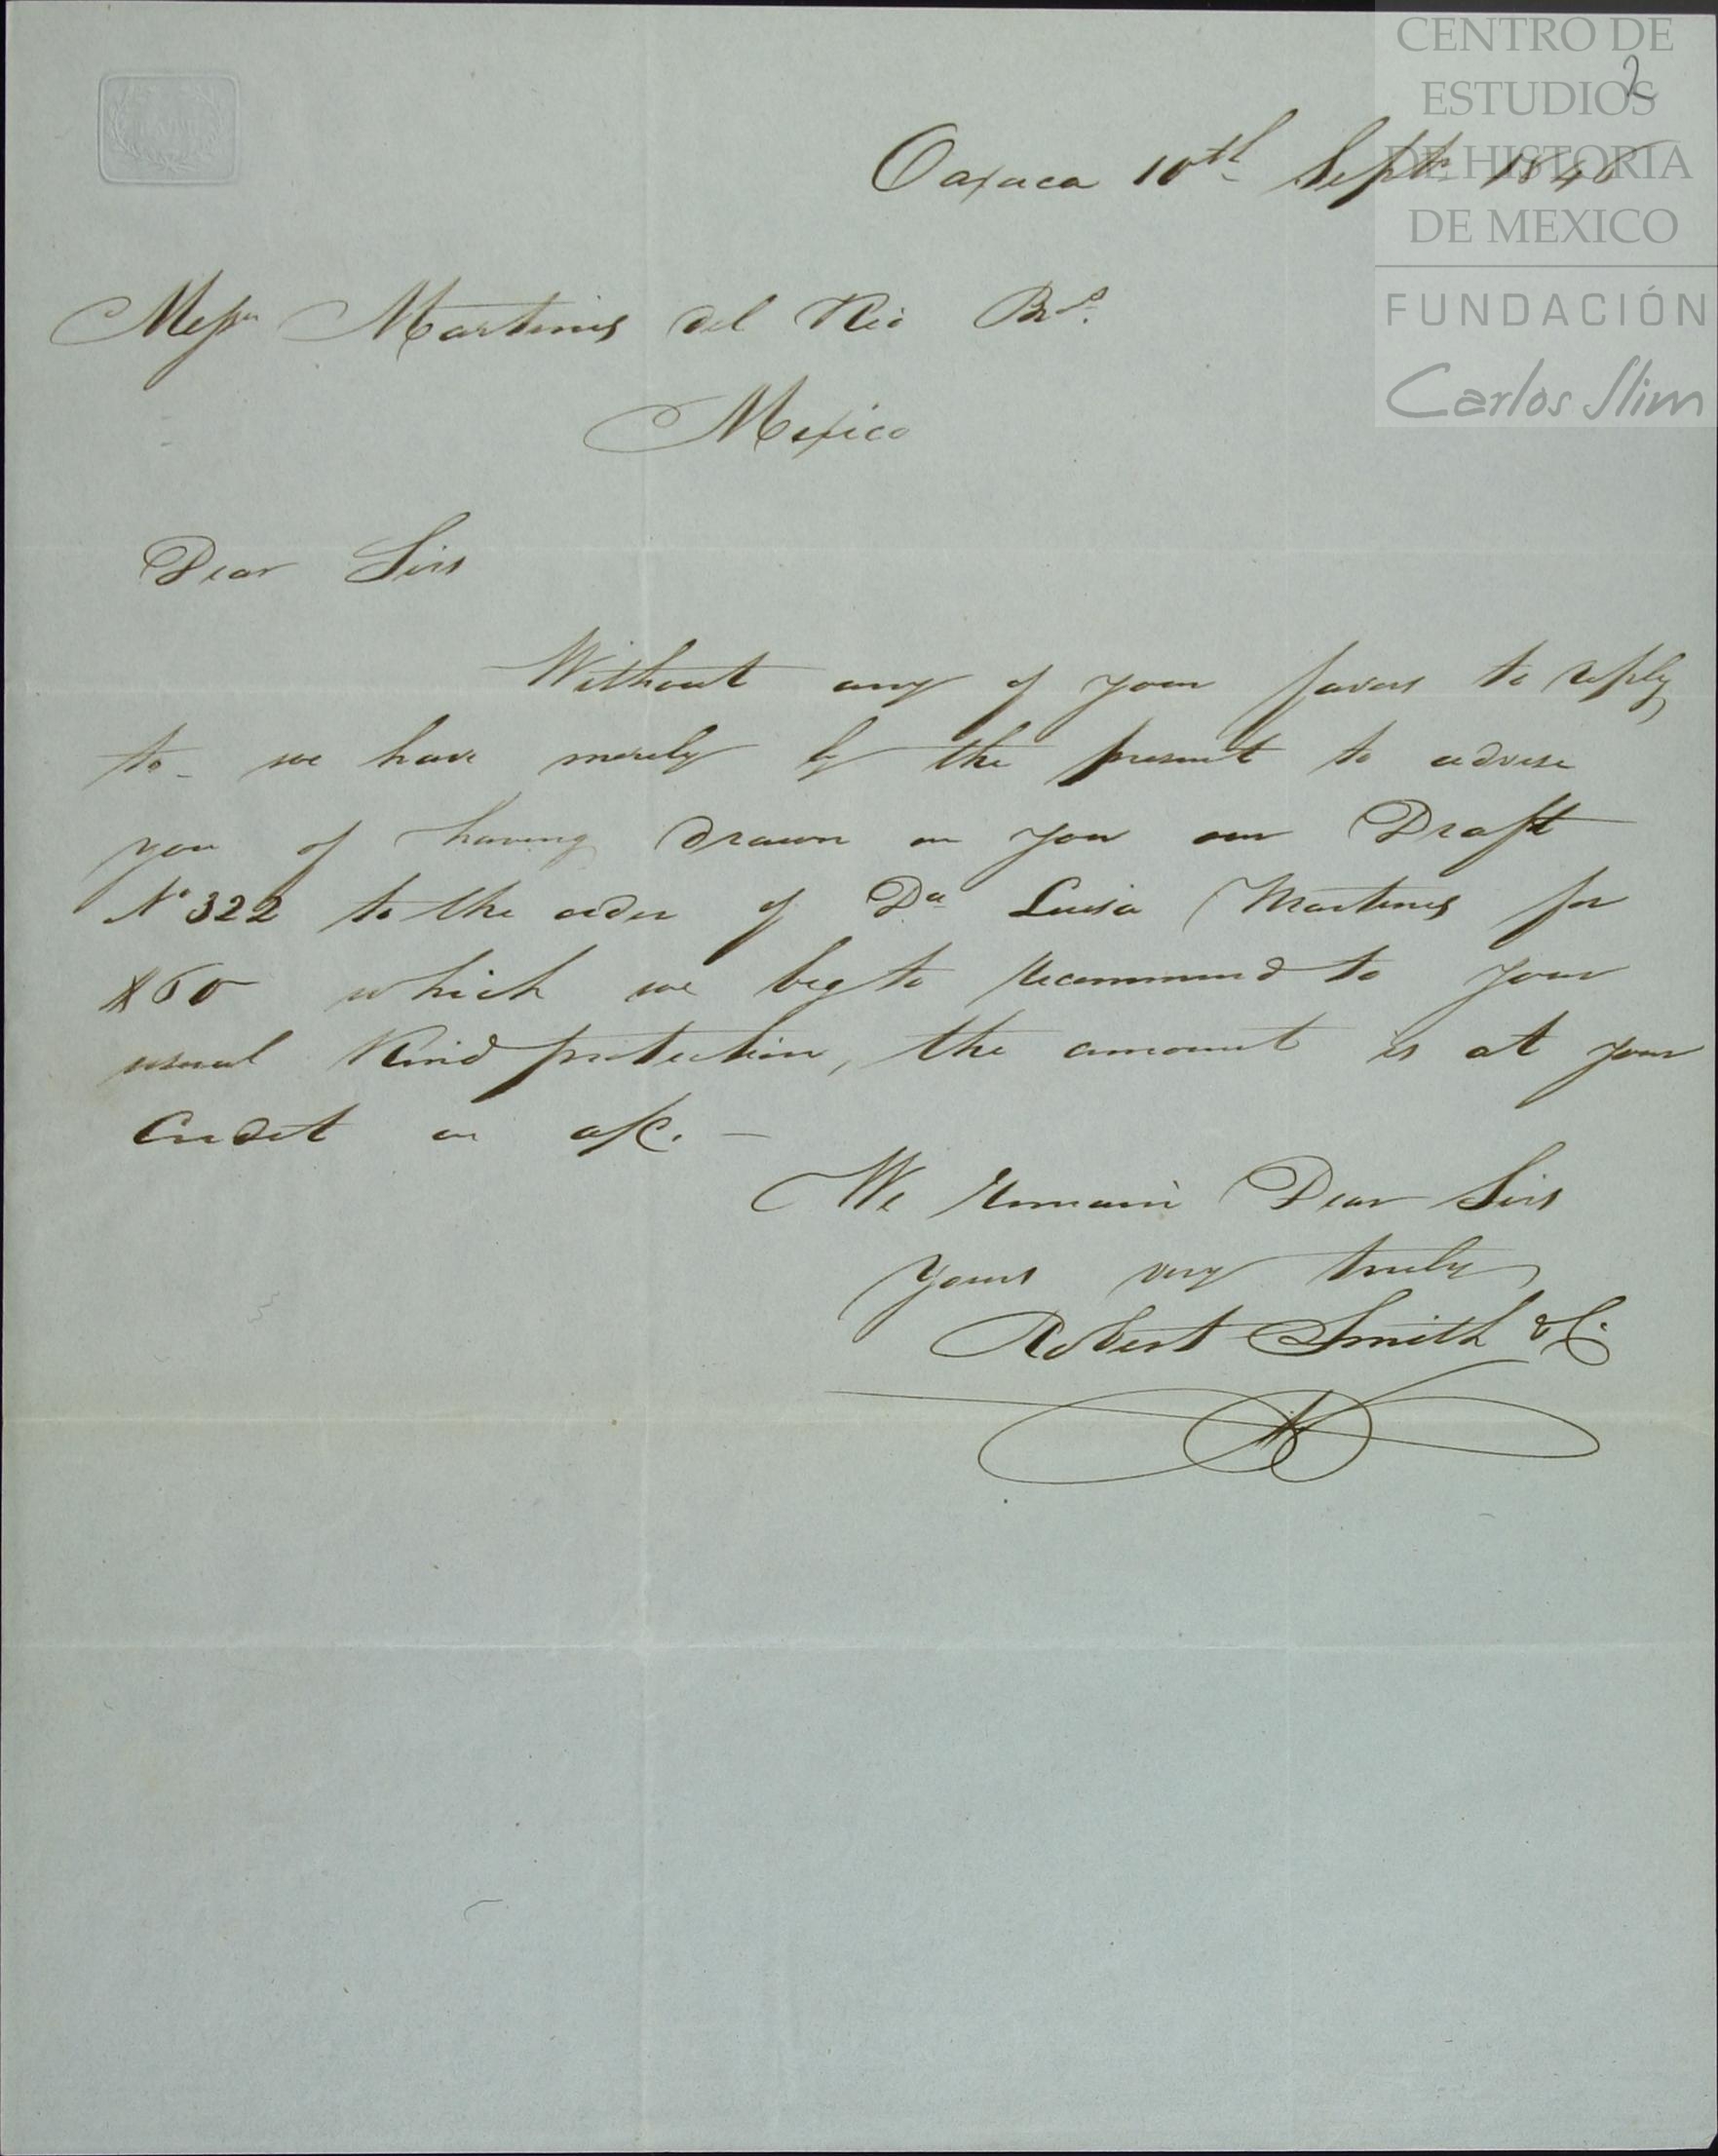 CENTRO DE
ESTUDIOS
DE HISTORIA
DE MEXICO
FUNDACIÓN
Carlos Slim
2
Oaxaca 10th Sept.
Messrs Martinis del Rio Brs.
Mexico
Dear Sirs
Without any of your favors to reply
to - we have merely by the present to advise
you of having drawn on you our Draft
No 322 to the order of Da Luisa Martines for
$60 which we beg to recommend to your
usual Kind protection, the amount is at your
Credit in a/c. —
We remain Dear Sirs
Yours very truly
Robert Smith & C.